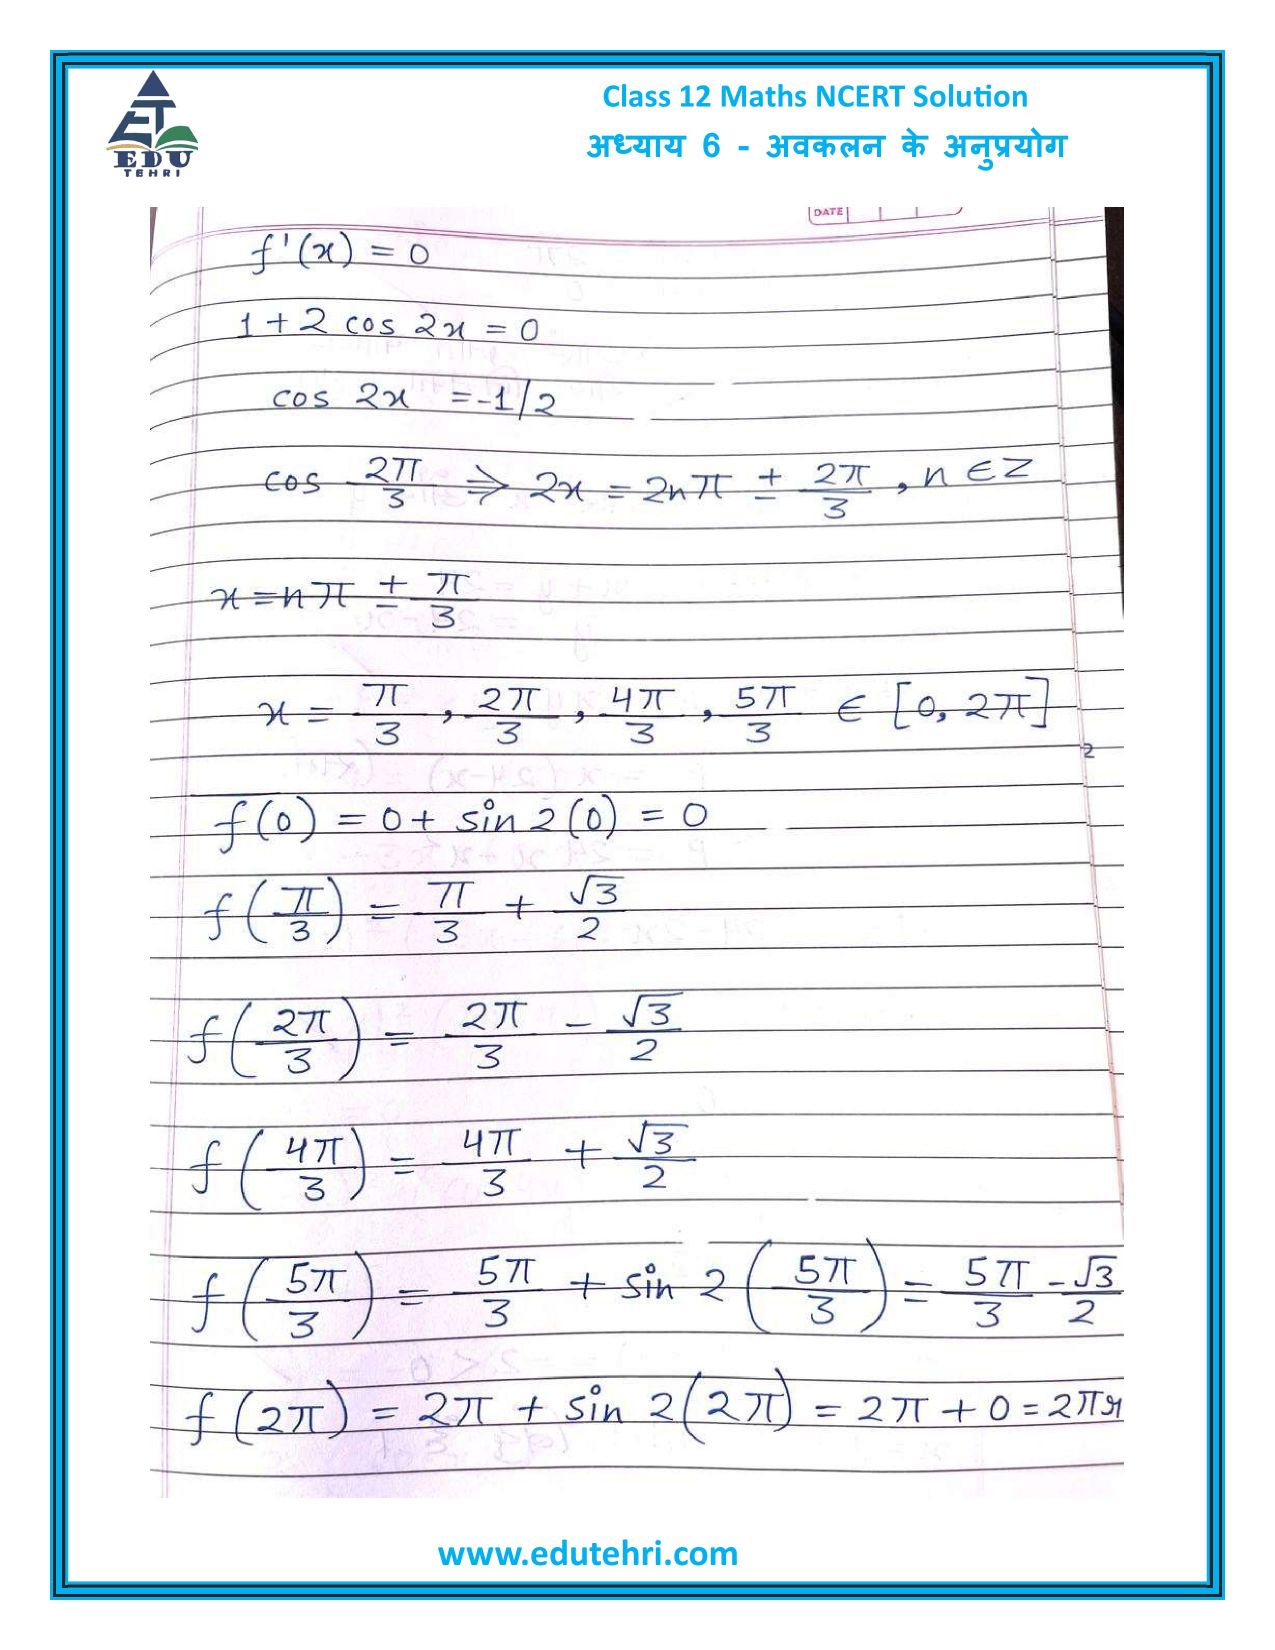 ET
EDU
TEHRI
Class 12 Maths NCERT Solution
अध्याय 6 - अवकलन के अनुप्रयोग
DATE
f'(x) = 0
1 + 2 cos 2x = 0
cos 2x = -1/2
cos 2π/3 ⇒ 2x = 2nπ ± 2π/3 , n ∈ Z
x = nπ ± π/3
x = π/3 , 2π/3 , 4π/3 , 5π/3 ∈ [0, 2π]
2
f(0) = 0 + sin 2(0) = 0
f(π/3) = π/3 + √3/2
f(2π/3) = 2π/3 - √3/2
f(4π/3) = 4π/3 + √3/2
f(5π/3) = 5π/3 + sin 2(5π/3) = 5π/3 - √3/2
f(2π) = 2π + sin 2(2π) = 2π + 0 = 2π
www.edutehri.com